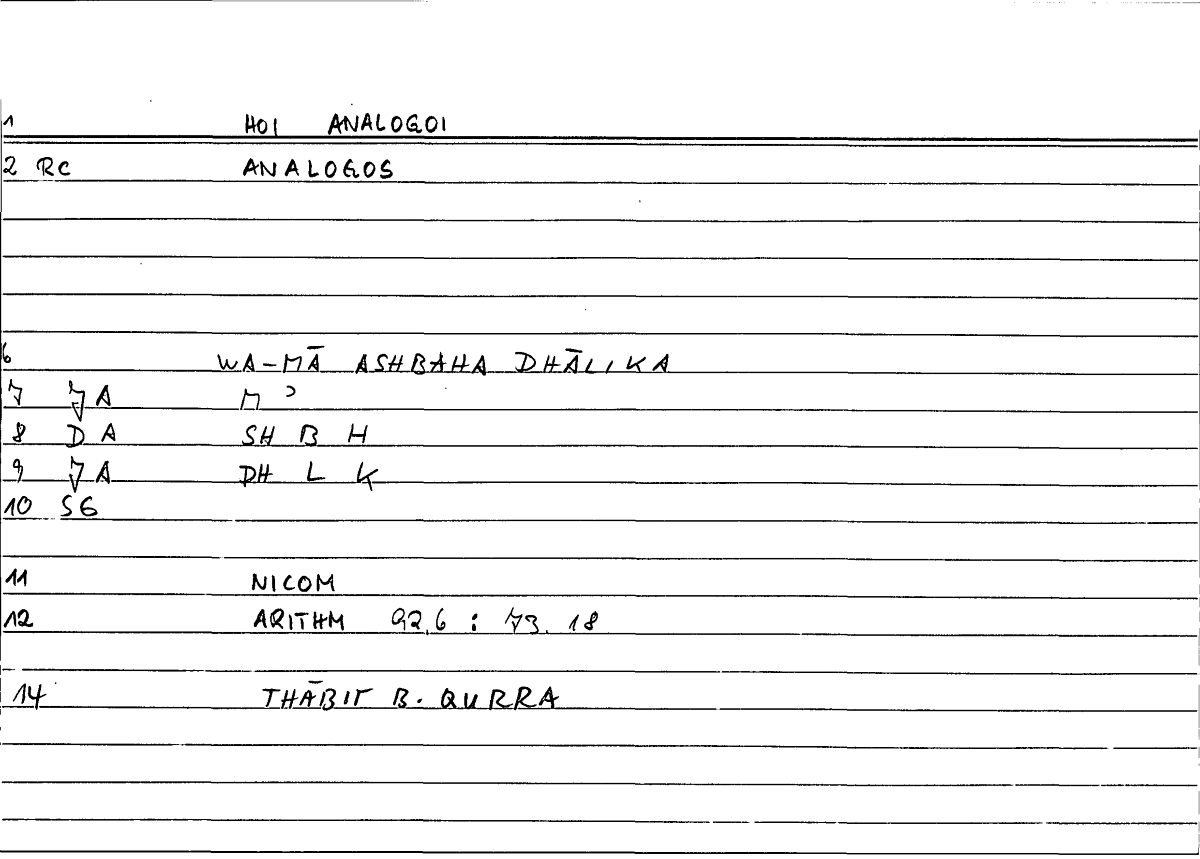 1 HOI ANALOGOI
2 RC ANALOGOS
6 WA-MĀ ASHBAHA DHĀLIKA
7 A M ʾ
8 DA SH B H
9 A DH L K
10 SG
11 NICOM
12 ARITHM 92,6 : 73.18
14 THĀBIT B. QURRA